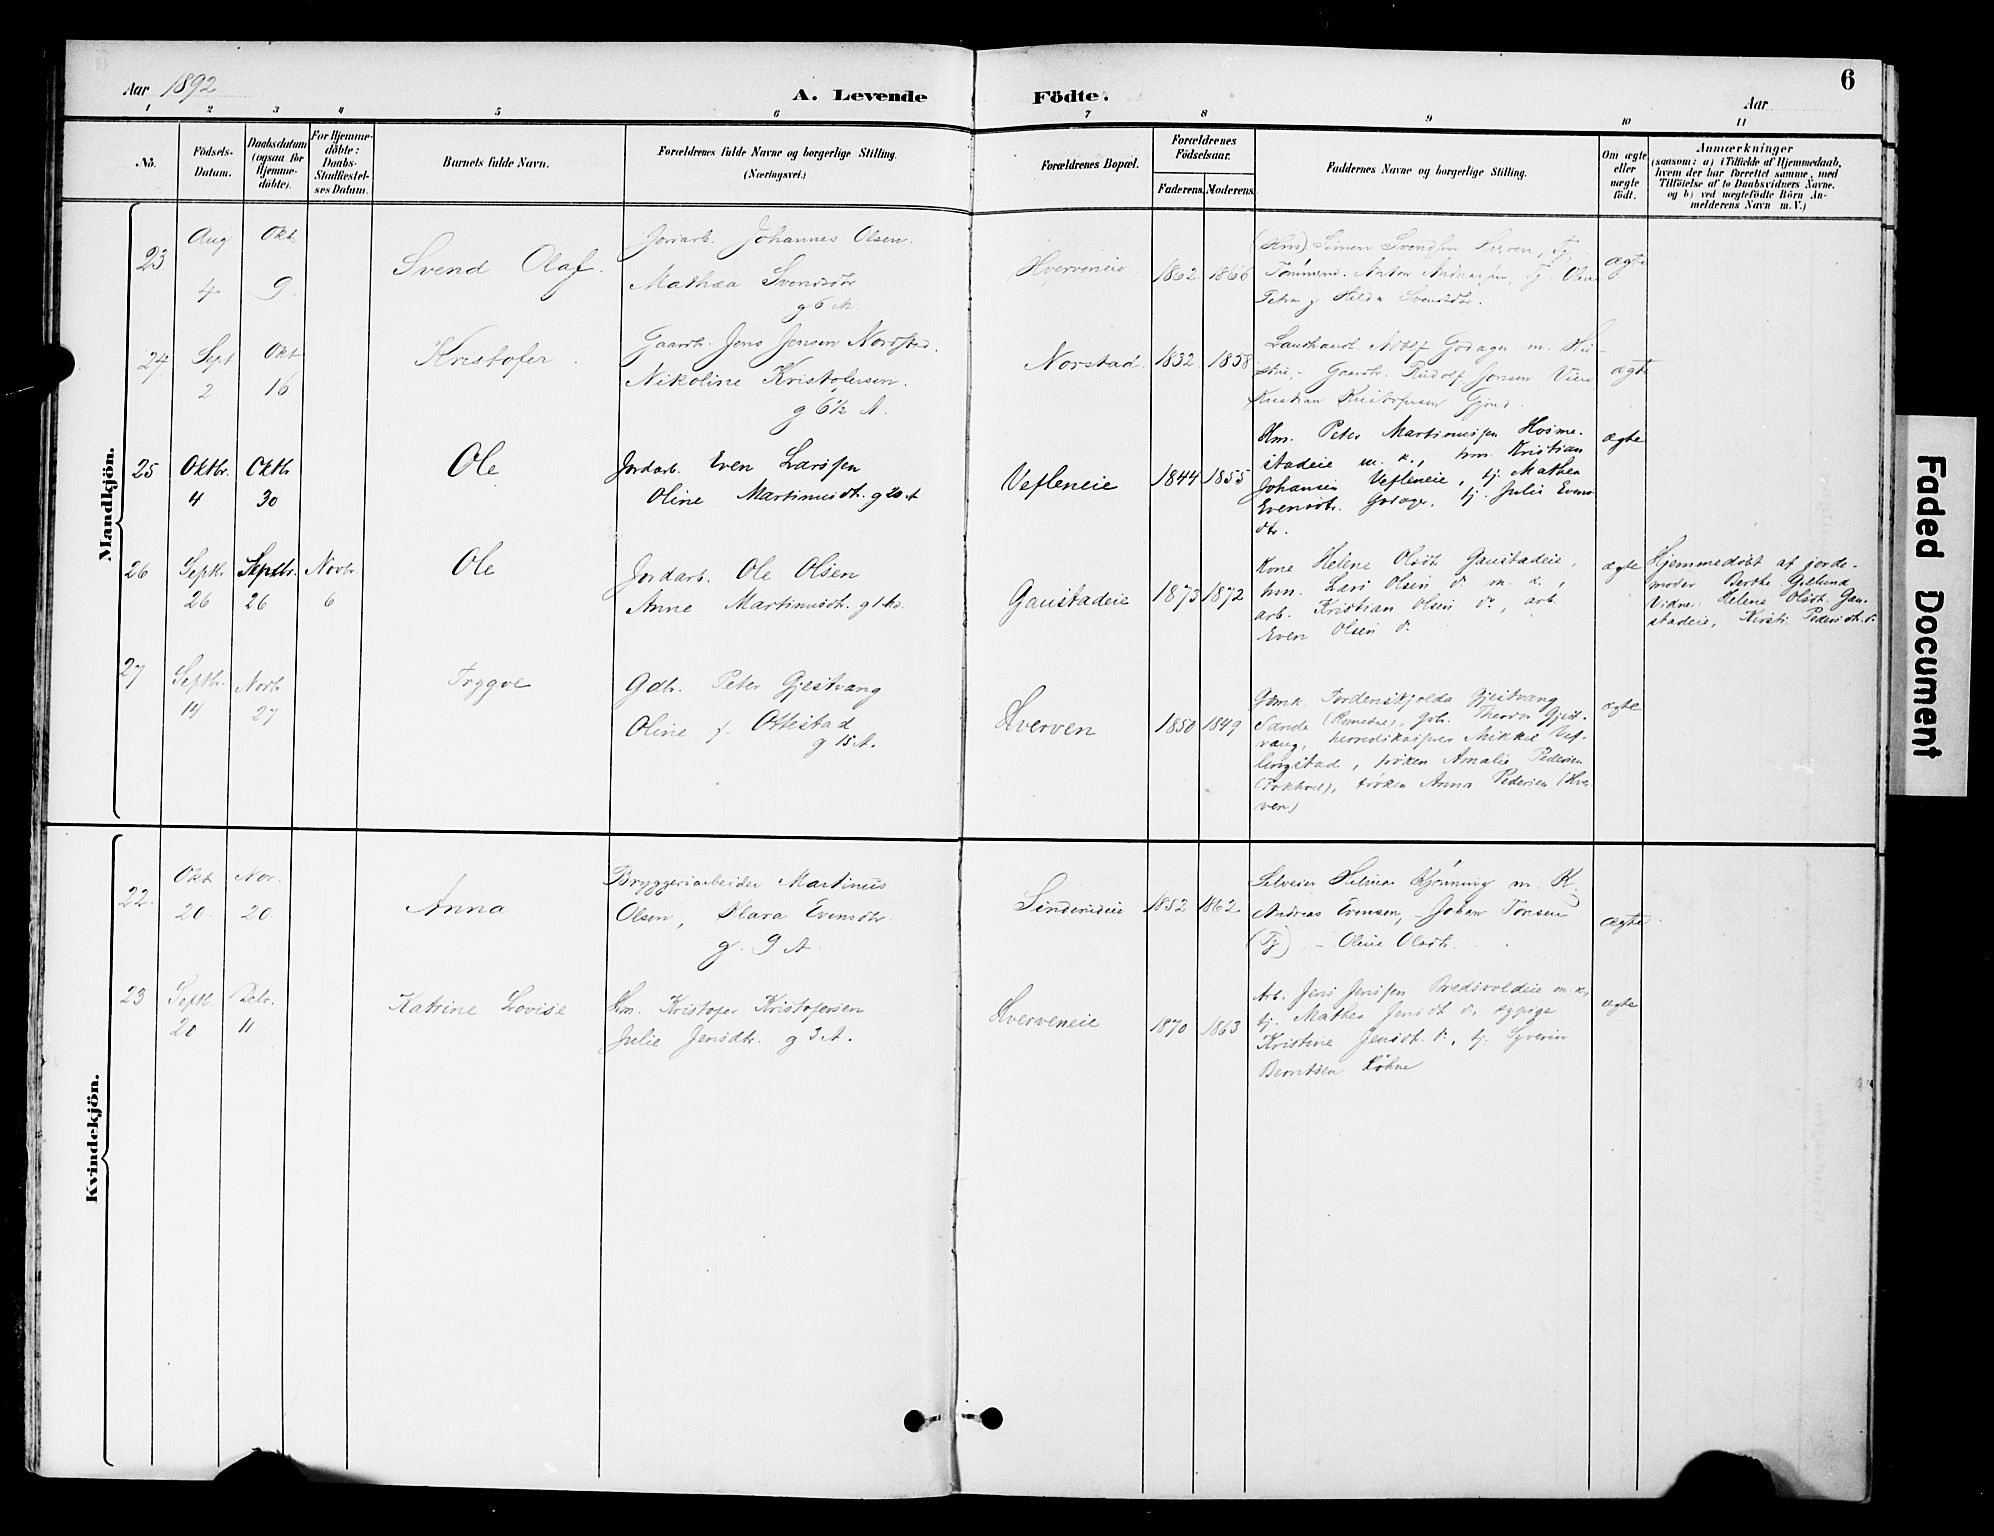 Aar 1892
A. Levende Födte.
6
Aar
1 2 3 4 5 6 7 8 9 10 11
No.
Födsels-
Datum.
Daabsdatum
(ogsaa for
Hjemme-
döbte).
For Hjemme-
döbte:
Daabs-
Stadfæstel-
ses Datum.
Barnets fulde Navn.
Forældrenes fulde Navne og borgerlige Stilling.
(Næringsvei.)
Forældrenes Bopæl.
Forældrenes
Födselsaar.
Faderens. Moderens.
Faddernes Navne og borgerlige Stilling.
Om ægte
eller
uægte
födt.
Anmærkninger
(saasom: a) i Tilfælde af Hjemmedaab,
hvem der har forrettet samme, med
Tilföielse af to Daabsvidners Navne.
og b) ved uægtefödte Börn An-
melderens Navn m. V.)
Mandkjön.
23
Aug
4
Okt
9
Svend Olaf.
Jordarb. Johannes Olsen.
Mathea Svendsdtr.
g 6 M.
Hverveneie
1862 1866
(Hm) Simen Svendsen Hverven, Tj.
Tömmerm. Anton Andreasen, Tj. Oline
Petra g Hilda Svendsdtr.
ægte
24
Sept
2
Okt
16
Kristofer
Gaardbr. Jens Jensen Norstad.
Nikoline Kristofersen.
g 6½ A.
Norstad
1832 1858
Landhand. Adolf Godager m. Hu-
stru, - Gaardbr. Rudolf Jensen
Kristian Kristofersen
ægte
25
Oktbr.
4
Oktbr
30
Ole
Jordarb. Even Larsen
Oline Martinusdtr. g 20 A
Vefleneie
1844 1855
Hm. Peter Martinussen Hosme-
stadeie m. k., hm. Kristian
Johansen Vefleneie, tj. Mathea
Evensdtr. Godager, tj. Julie Evens-
dtr.
ægte
26
Septbr
26
Septbr.
26
Novbr
6
Ole
Jordarb. Ole Olsen
Anne Martinusdtr. g 1 A.
Gaustadeie
1873 1872
Kone Helene Olsdt Gaustadeie,
hm. Lars Olsen do m. k.,
arb. Kristian Olsen do, arb.
Even Olsen do
ægte
Hjemmedöbt af jorde-
moder Berthe Gjelund
Vidner Helene Olsdt. Gau-
stadeie, Kirsti Pedersdt. do
27
Septbr.
14
Novbr
27
Trygve
Gdbr. Peter Gjestvang
Oline f. Ottestad
g 15 A.
Hverven
1850 1849
Gdmk. Tordenskjolda Gjestvang
Sande (Romedal), gdbr. Thorvor Gjest-
vang, herredskasserer Mikkel Vef-
lingstad, fröken Amalie Pedersen
fröken Anna Pedersen (Hver-
ven)
ægte
Kvindekjön.
22.
Okt
20.
Nov.
20.
Anna
Bryggeriarbeider Martinus
Olsen, Klara Evensdtr.
g. 9 A.
1852 1862
Selveier Hilmar Kjönning m. K.
Andreas Evensen, - Johan Tonsen
(Tj) - Oline Olsdtr.
ægte
23
Septb.
20
Debr.
11
Katrine Lovise
Hm. Kristofer Kristofersen
Julie Jensdtr. g 3 A.
Hverveneie
1870 1863
Arb. Jens Jensen Bredsvoldeie m. k,
tj. Mathea Jensdt do, sypige
Kristine Jensdt. do, tj. Syverin
Berntsen Köhne
ægte
Faded Document